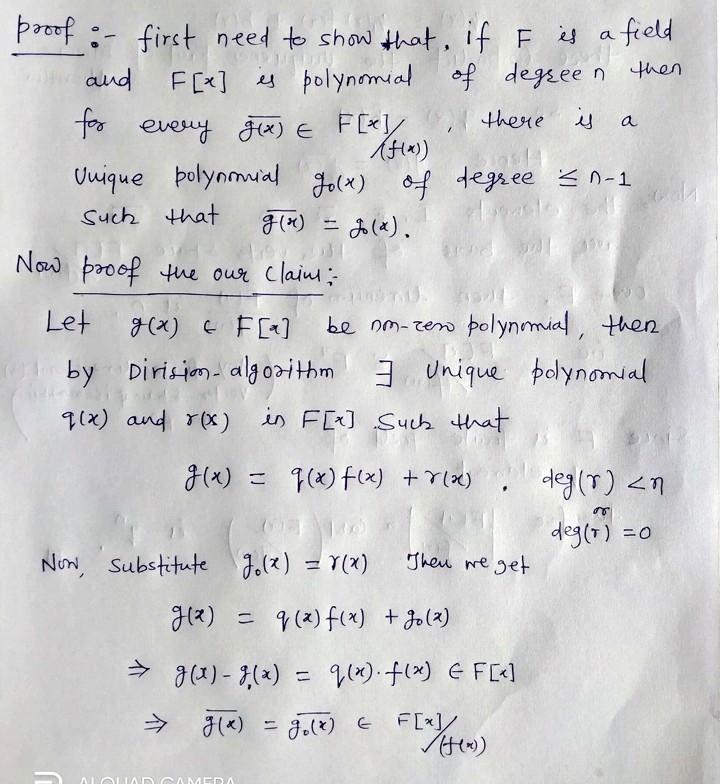 proof :- first need to show that, if F is a field
and F[x] is polynomial of degree n then
for every \overline{g(x)} ∈ F[x]/(f(x)) , there is a
Unique polynomial g₀(x) of degree ≤ n-1
Such that \overline{g(x)} = g₀(x).
Now proof the our claim:-
Let g(x) ∈ F[x] be non-zero polynomial, then
by Division-algorithm ∃ Unique polynomial
q(x) and r(x) in F[x] Such that
g(x) = q(x) f(x) + r(x) . deg(r) < n
or
deg(r) = 0
Now, Substitute g₀(x) = r(x) Then we get
g(x) = q(x) f(x) + g₀(x)
⇒ g(x) - g₀(x) = q(x)·f(x) ∈ F[x]
⇒ \overline{g(x)} = \overline{g₀(x)} ∈ F[x]/(f(x))
ALQUAD CAMERA